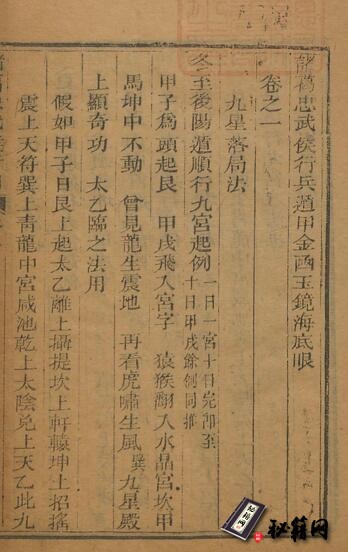 諸葛忠武侯行兵遁甲金函玉鏡海底眼
卷之一
九星落局法
冬至後陽遁順行九宮起例一日一宮十日完卽至十日甲戌餘倒同推
甲子爲頭起艮　甲戌飛入宮字　猿猴翻入水晶宮坎甲
馬坤申不動　曾見龍生震地　再看虎嘯生風巽　九星殿
上顯奇功　太乙臨之法用
假如甲子日艮上起太乙離上攝提坎上軒轅坤上招搖
震上天符巽上青龍中宮咸池乾上太陰兌上天乙此九
秘籍网